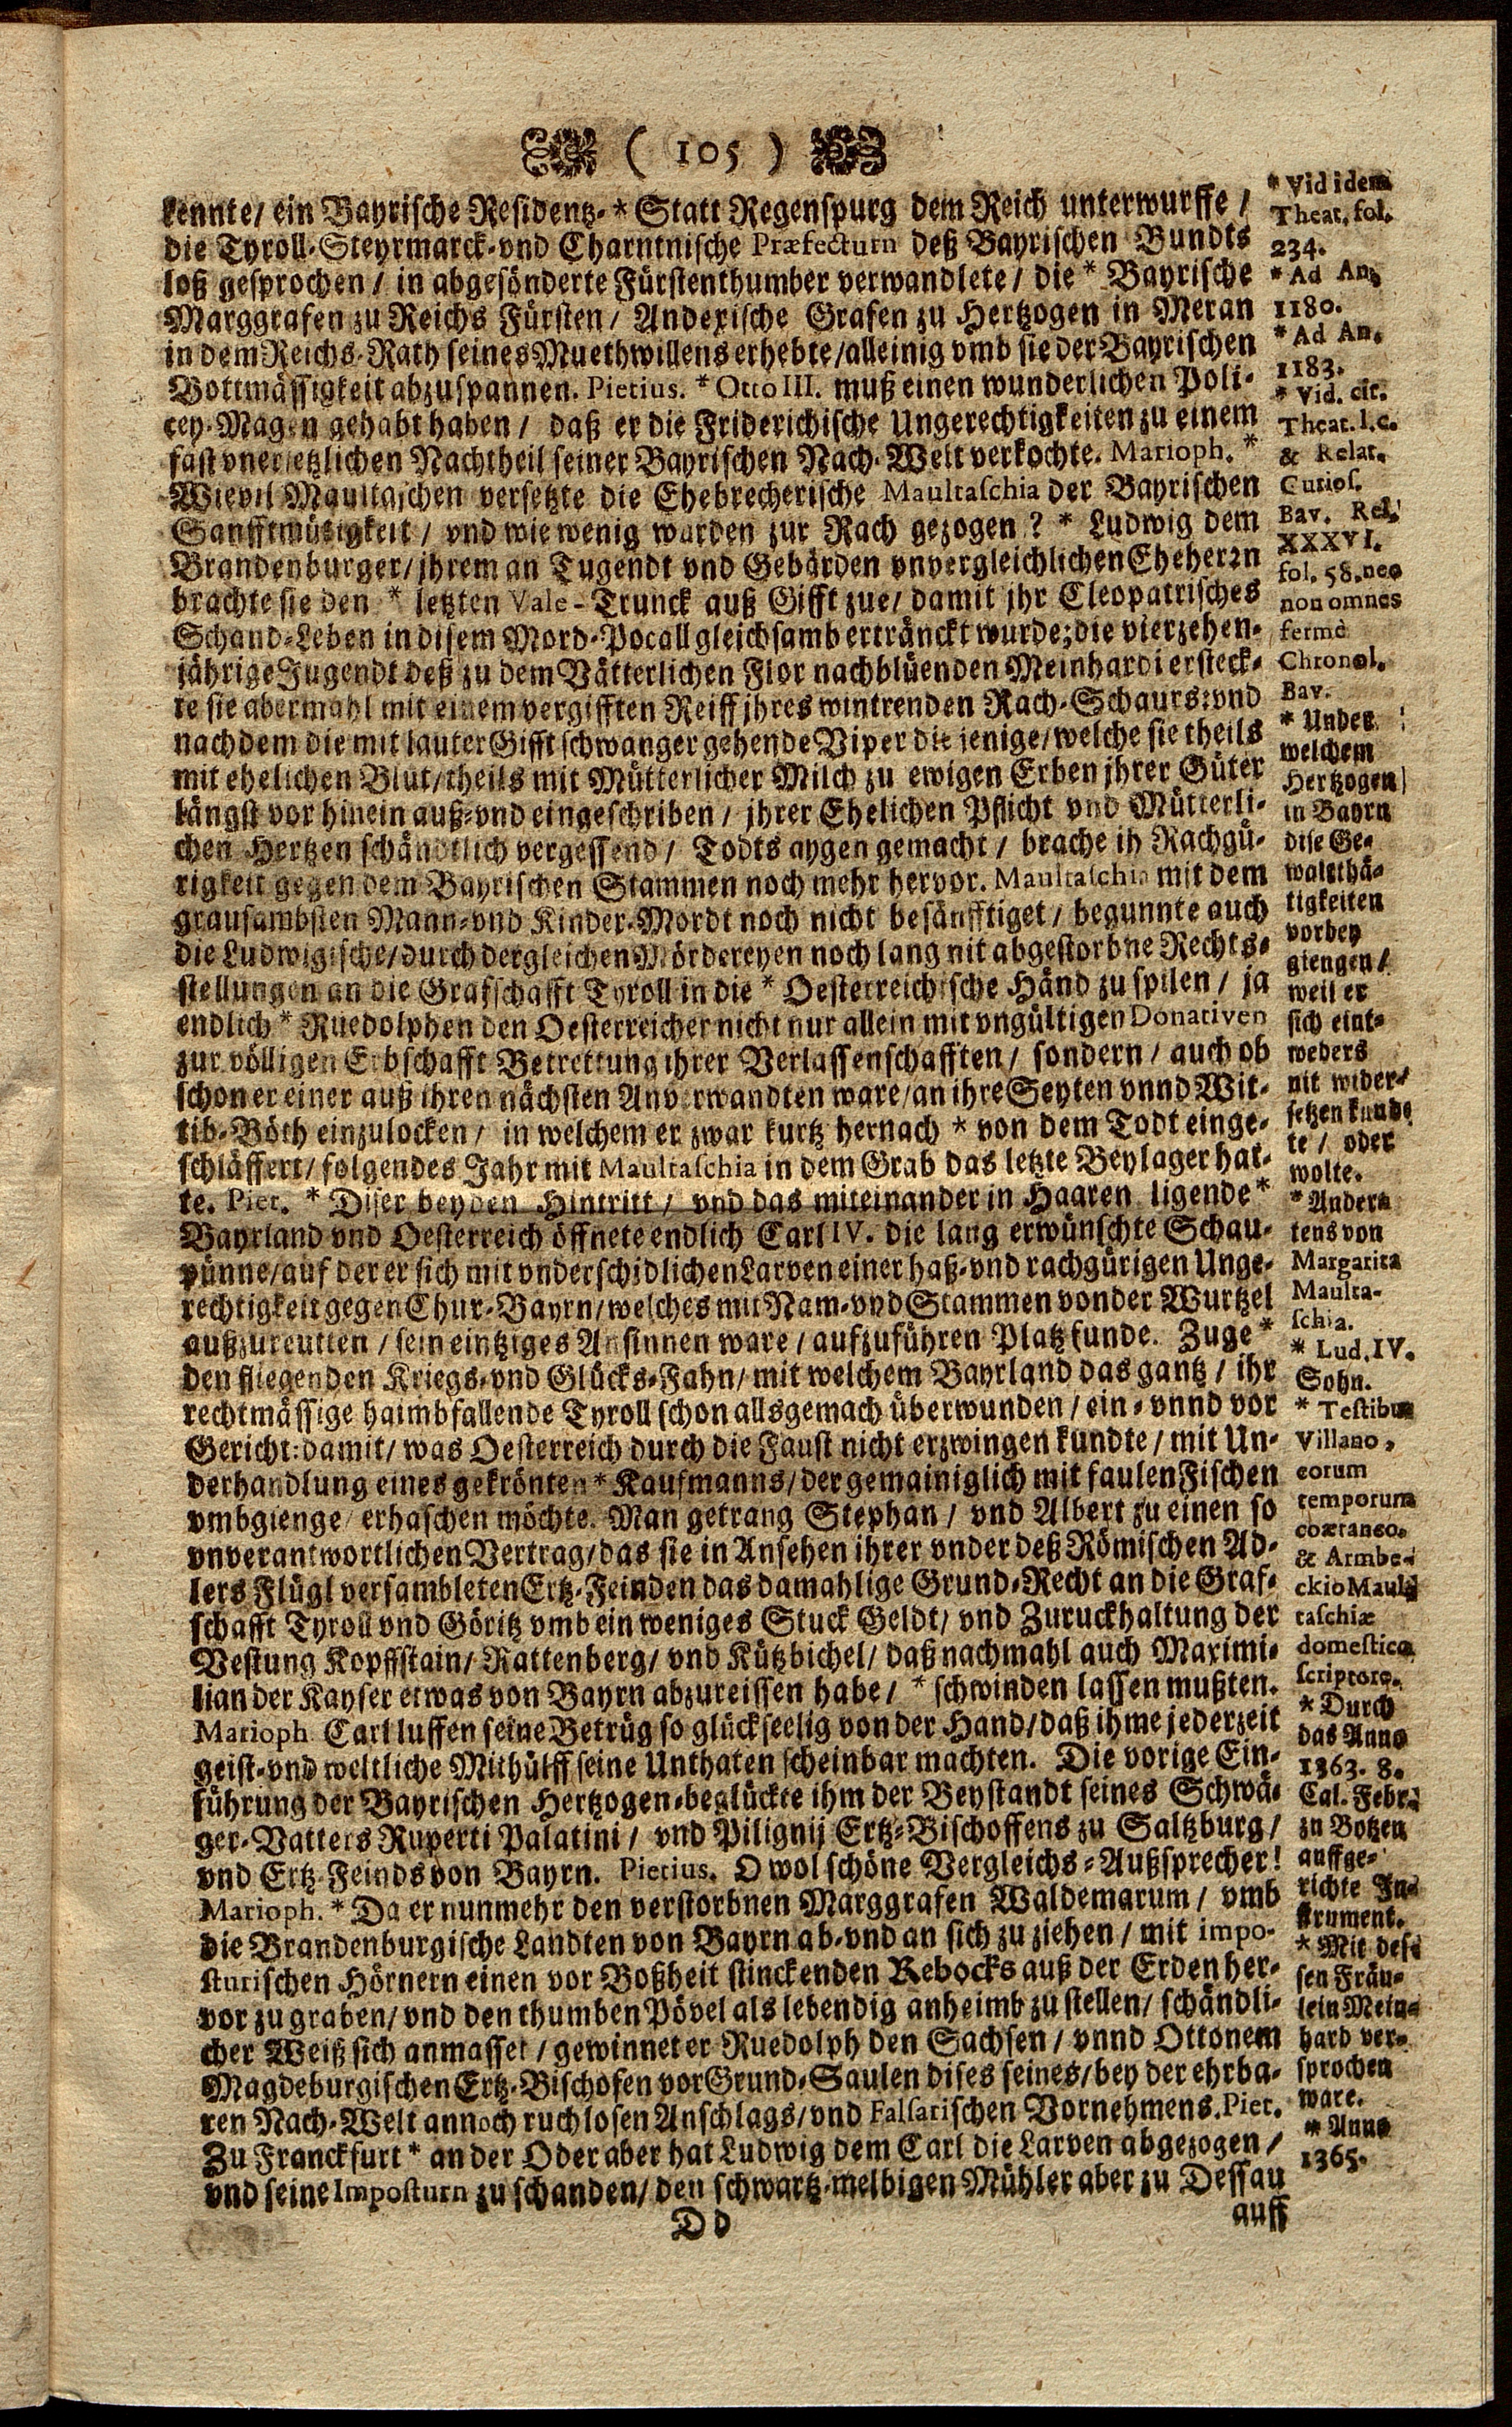 ( 105 )
kennte/ ein Bayrische Residentz-* Statt Regenspurg dem Reich unterwurffe /
die Tyroll-Steyrmarck-vnd Charntnische Præfecturn deß Bayrischen Bundts
loß gesprochen / in abgesönderte Fürstenthumber verwandlete / die * Bayrische
Marggrafen zu Reichs Fürsten/ Andexische Grafen zu Hertzogen in Meran
in dem Reichs-Rath seines Muethwillens erhebte/alleinig vmb sie der Bayrischen
Bottmässigkeit abzuspannen. Pietius. * Otto III. muß einen wunderlichen Poli-
cey-Magen gehabt haben / daß er die Friderichische Ungerechtigkeiten zu einem
fast vnersetzlichen Nachtheil seiner Bayrischen Nach-Welt verkochte. Marioph. *
Wievil Maultaschen versetzte die Ehebrecherische Maultaschia der Bayrischen
Sanfftmütigkeit / vnd wie wenig wurden zur Rach gezogen? * Ludwig dem
Brandenburger/ jhrem an Tugendt vnd Gebärden vnvergleichlichen Eheherzn
brachte sie den * letzten Vale-Trunck auß Gifft zue/ damit jhr Cleopatrisches
Schand-Leben in disem Mord-Pocall gleichsamb ertränckt wurde; die vierzehen-
jährige Jugendt deß zu dem Vätterlichen Flor nachblüenden Meinhardi ersteck-
te sie abermahl mit einem vergifften Reiff jhres wintrenden Rach-Schaurs: vnd
nachdem die mit lauter Gifft schwanger gehende Viper die jenige/ welche sie theils
mit ehelichen Blut/theils mit Mütterlicher Milch zu ewigen Erben jhrer Güter
längst vor hinein auß-vnd eingeschriben / jhrer Ehelichen Pflicht vnd Mütterli-
chen Hertzen schändtlich vergessend / Todts aygen gemacht / brache ih Rachgü-
rigkeit gegen dem Bayrischen Stammen noch mehr hervor. Maultaschia mit dem
grausambsten Mann-vnd Kinder-Mordt noch nicht besänfftiget / begunnte auch
die Ludwigische/durch dergleichen Mördereyen noch lang nit abgestorbne Rechts-
stellungen an die Grafschafft Tyroll in die * Oesterreichische Händ zu spilen / ja
endlich * Ruedolphen den Oesterreicher nicht nur allein mit vngültigen Donativen
zur völligen Erbschafft Betrettung ihrer Verlassenschafften / sondern / auch ob
schon er einer auß ihren nächsten Anverwandten ware/an ihre Seyten vnnd Wit-
tib-Böth einzulocken / in welchem er zwar kurtz hernach * von dem Todt einge-
schläffert/ folgendes Jahr mit Maultaschia in dem Grab das letzte Beylager hat-
te. Piet. * Diser beyden Hintritt / vnd das miteinander in Haaren ligende *
Bayrland vnd Oesterreich öffnete endlich Carl IV. die lang erwünschte Schau-
pünne/auf der er sich mit vnderschidlichen Larven einer haß-vnd rachgürigen Unge-
rechtigkeit gegen Chur-Bayrn/welches mit Nam-vnd Stammen von der Wurtzel
außzureutten / sein eintziges Ansinnen ware / aufzuführen Platz funde. Zuge *
den fliegenden Kriegs-vnd Glücks-Fahn/ mit welchem Bayrland das gantz / ihr
rechtmässige haimbfallende Tyroll schon allsgemach überwunden / ein-vnnd vor
Gericht: damit/ was Oesterreich durch die Faust nicht erzwingen kundte / mit Un-
derhandlung eines gekrönten * Kaufmanns/ der gemainiglich mit faulen Fischen
vmbgienge/ erhaschen möchte. Man getrang Stephan / vnd Albert zu einen so
vnverantwortlichen Vertrag/ das sie in Ansehen ihrer vnder deß Römischen Ad-
lers Flügl versambleten Ertz-Feinden das damahlige Grund-Recht an die Graf-
schafft Tyroll vnd Göritz vmb ein weniges Stuck Geldt/ vnd Zuruckhaltung der
Vestung Kopffstain/ Rattenberg/ vnd Kützbichel/ daß nachmahl auch Maximi-
lian der Kayser etwas von Bayrn abzureissen habe / * schwinden lassen mußten.
Marioph. Carl luffen seine Betrüg so glückseelig von der Hand/ daß ihme jederzeit
geist-vnd weltliche Mithülff seine Unthaten scheinbar machten. Die vorige Ein-
führung der Bayrischen Hertzogen-beglückte ihm der Beystandt seines Schwä-
ger-Vatters Ruperti Palatini / vnd Pilignij Ertz-Bischoffens zu Saltzburg /
vnd Ertz-Feinds von Bayrn. Pietius. O wol schöne Vergleichs-Außsprecher!
Marioph. * Da er nunmehr den verstorbnen Marggrafen Waldemarum / vmb
die Brandenburgische Landten von Bayrn ab-vnd an sich zu ziehen / mit impo-
sturischen Hörnern einen vor Boßheit stinckenden Rebocks auß der Erden her-
vor zu graben/ vnd den thumben Pövel als lebendig anheimb zu stellen/ schändli-
cher Weiß sich anmasset / gewinnet er Ruedolph den Sachsen / vnnd Ottonem
Magdeburgischen Ertz-Bischofen vor Grund-Saulen dises seines/ bey der ehrba-
ren Nach-Welt annoch ruchlosen Anschlags/ vnd Falsarischen Vornehmens. Piet.
Zu Franckfurt * an der Oder aber hat Ludwig dem Carl die Larven abgezogen /
vnd seine Imposturn zu schanden/ den schwartz-melbigen Mühler aber zu Dessau
Dd
auff
* Vid idem
Theat. fol.
234.
* Ad An.
1180.
* Ad An.
1183.
* Vid. cit.
Theat. l. c.
& Relat.
Curios.
Bav. Rel.
XXXVI.
fol. 58. nec
non omnes
fermè
Chronol.
Bav.
* Under
welchem
Hertzogen
in Bayrn
dise Ge-
waltthä-
tigkeiten
vorbey
giengen/
weil er
sich eint-
weders
nit wider-
setzen kund-
te / oder
wolte.
* Andern
tens von
Margarita
Maulta-
schia.
* Lud. IV.
Sohn.
* Testibus
Villano,
eorum
temporum
coætaneo.
& Armbe-
ckio Maul-
taschiæ
domestico
scriptore.
* Durch
das Anno
1363. 8.
Cal. Febr.
zu Botzen
auffge-
richte In-
strument.
* Mit des-
sen Fräu-
lein Mein-
hard ver-
sprochen
ware.
* Anno
1365.